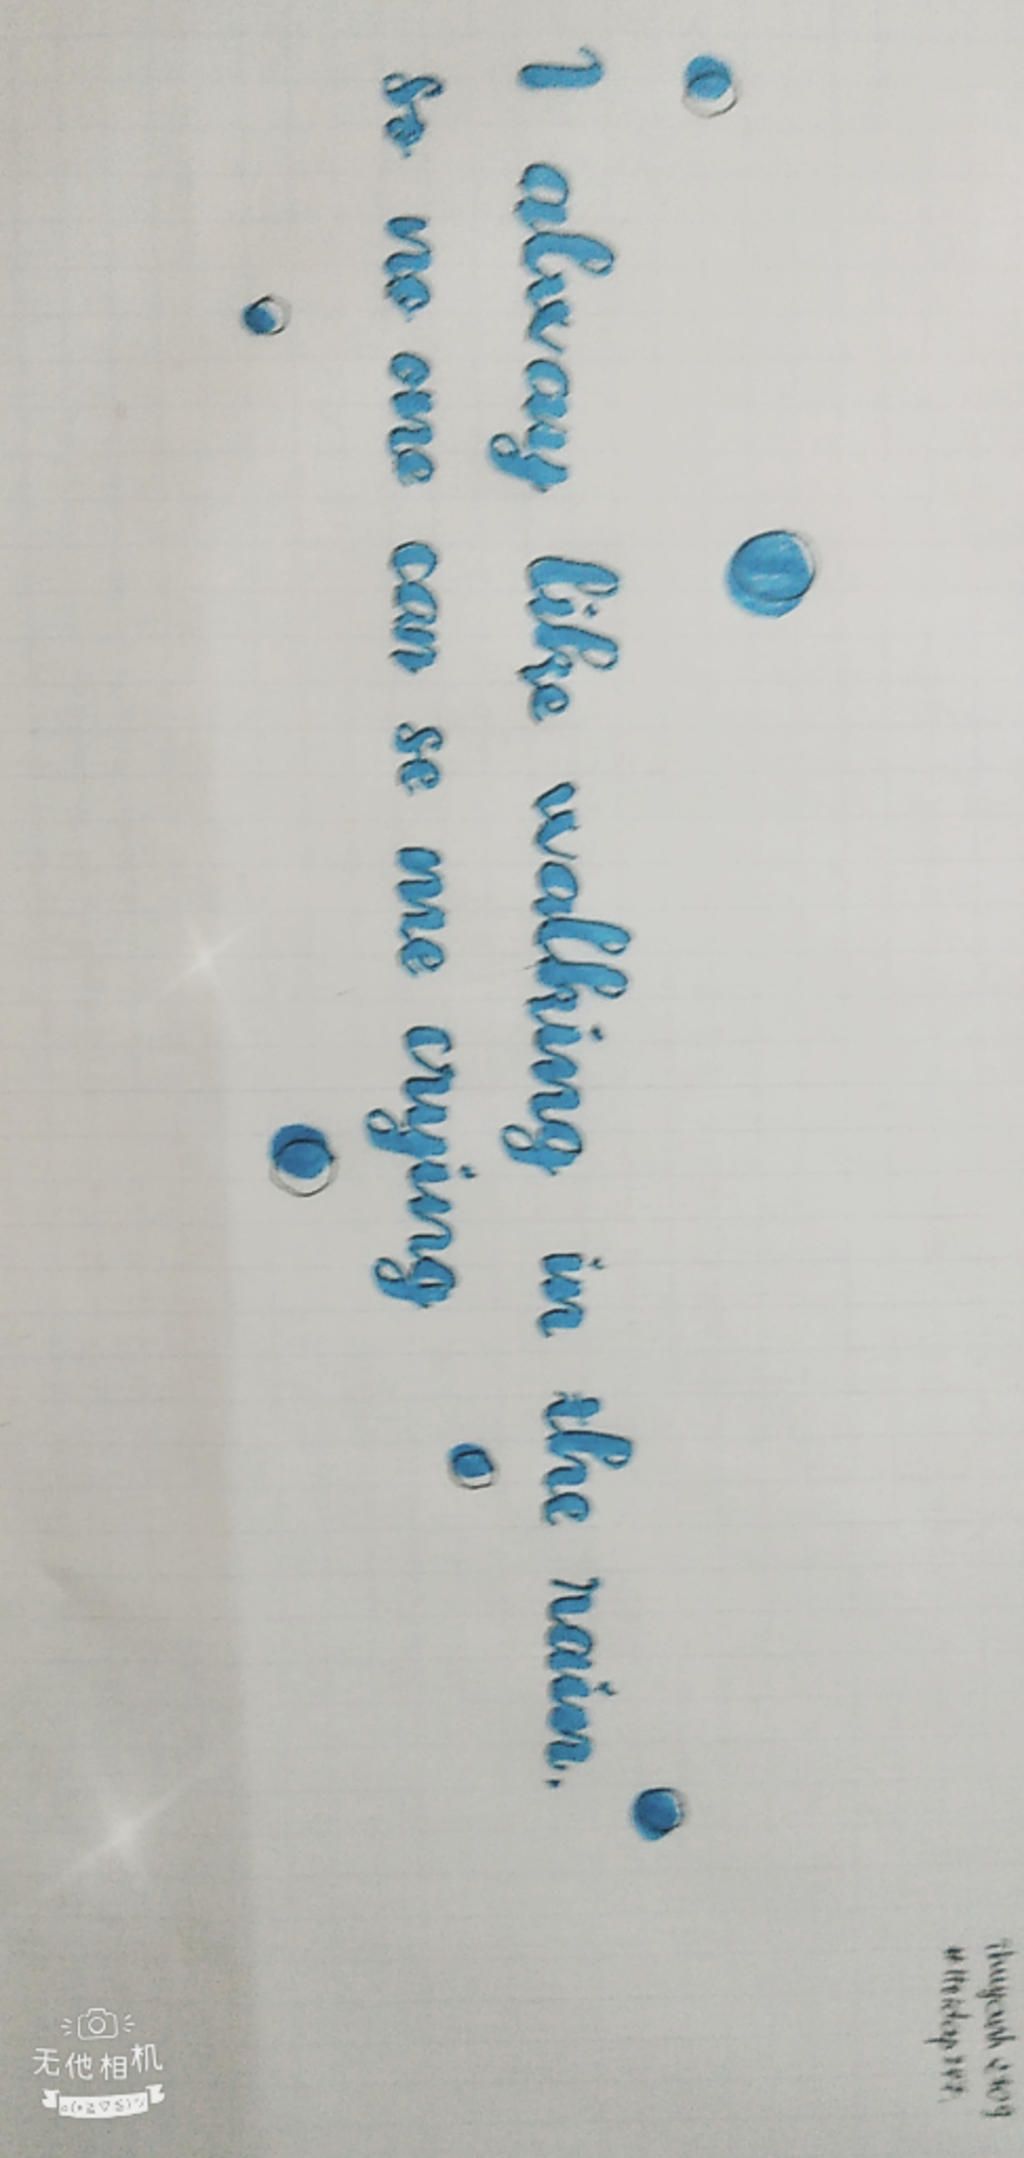 I alway like walking in the rain.
so no one can se me crying
无他相机